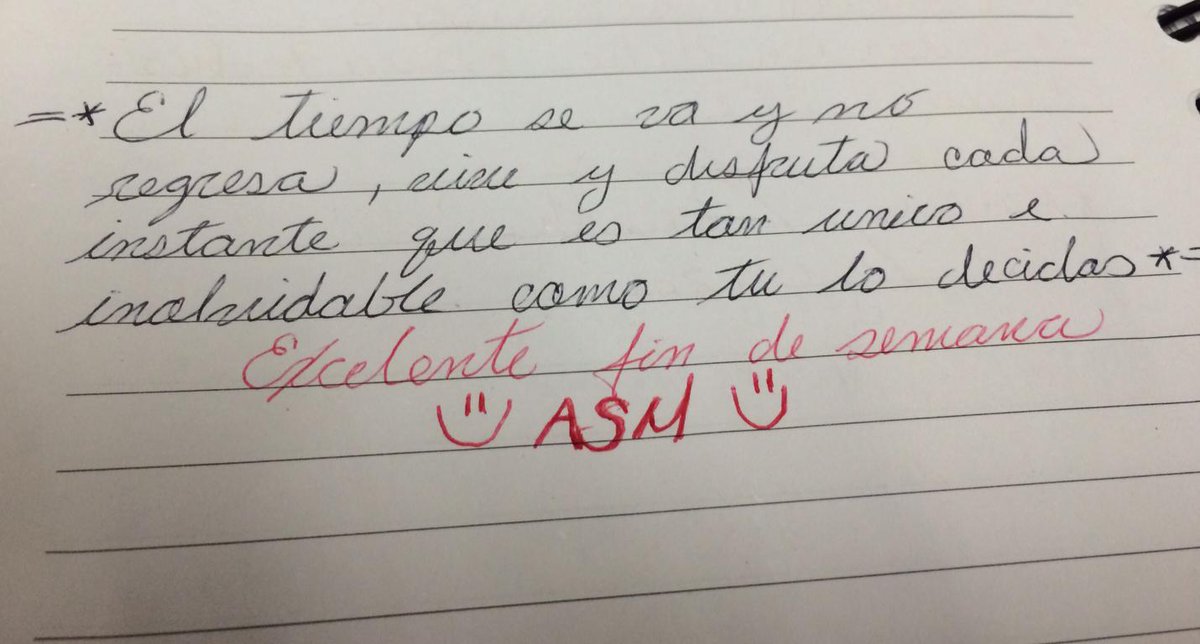 =*El tiempo se va y no
regresa, vive y disfruta cada
instante que es tan unico e
inolvidable como tu lo decidas*=
Excelente fin de semana
ASM